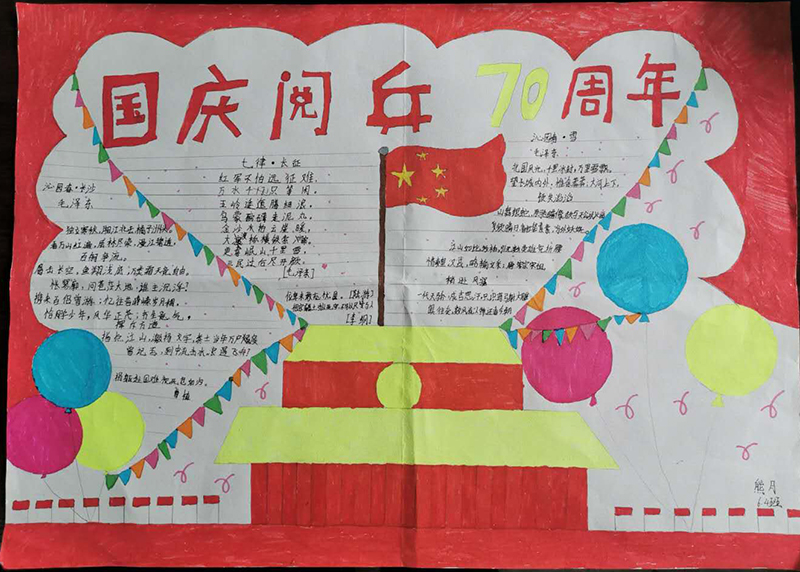 国庆阅兵 70周年
沁园春·长沙
毛泽东
独立寒秋，湘江北去，橘子洲头。
看万山红遍，层林尽染，漫江碧透，
百舸争流。
鹰击长空，鱼翔浅底，万类霜天竞自由。
怅寥廓，问苍茫大地，谁主沉浮？
携来百侣曾游，忆往昔峥嵘岁月稠。
恰同学少年，风华正茂；书生意气，
挥斥方遒
指点江山，激扬文字，粪土当年万户侯。
曾记否，到中流击水，浪遏飞舟？
捐躯赴国难，视死忽如归。
曹植
七律·长征
红军不怕远征难，
万水千山只等闲。
五岭逶迤腾细浪，
乌蒙磅礴走泥丸。
金沙水拍云崖暖，
大渡桥横铁索寒。
更喜岷山千里雪，
三军过后尽开颜。
[毛泽东]
位卑未敢忘忧国。[陆游]
沁园春·雪
毛泽东
北国风光，千里冰封，万里雪飘。
望长城内外，惟余莽莽，大河上下，
顿失滔滔
江山如此多娇，引无数英雄竞折腰
稍逊风骚
熊月